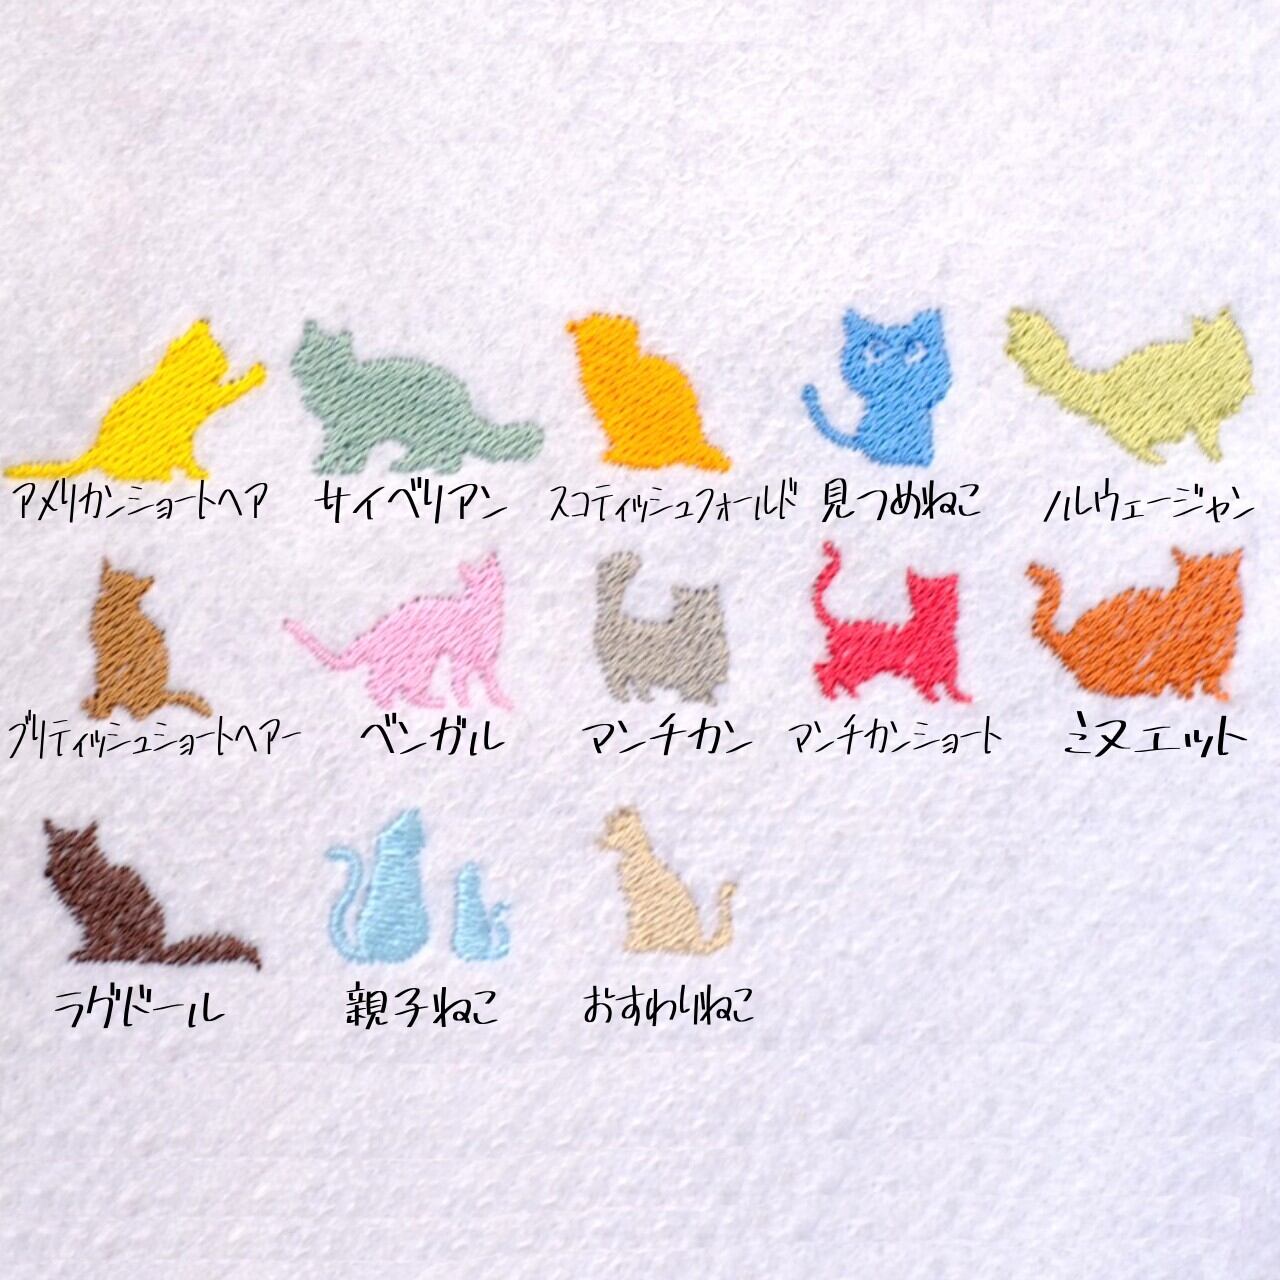 アメリカンショートヘア
サイベリアン
スコティッシュフォールド
見つめねこ
ノルウェージャン
ブリティッシュショートヘアー
ベンガル
マンチカン
マンチカンショート
ミヌエット
ラグドール
親子ねこ
おすわりねこ